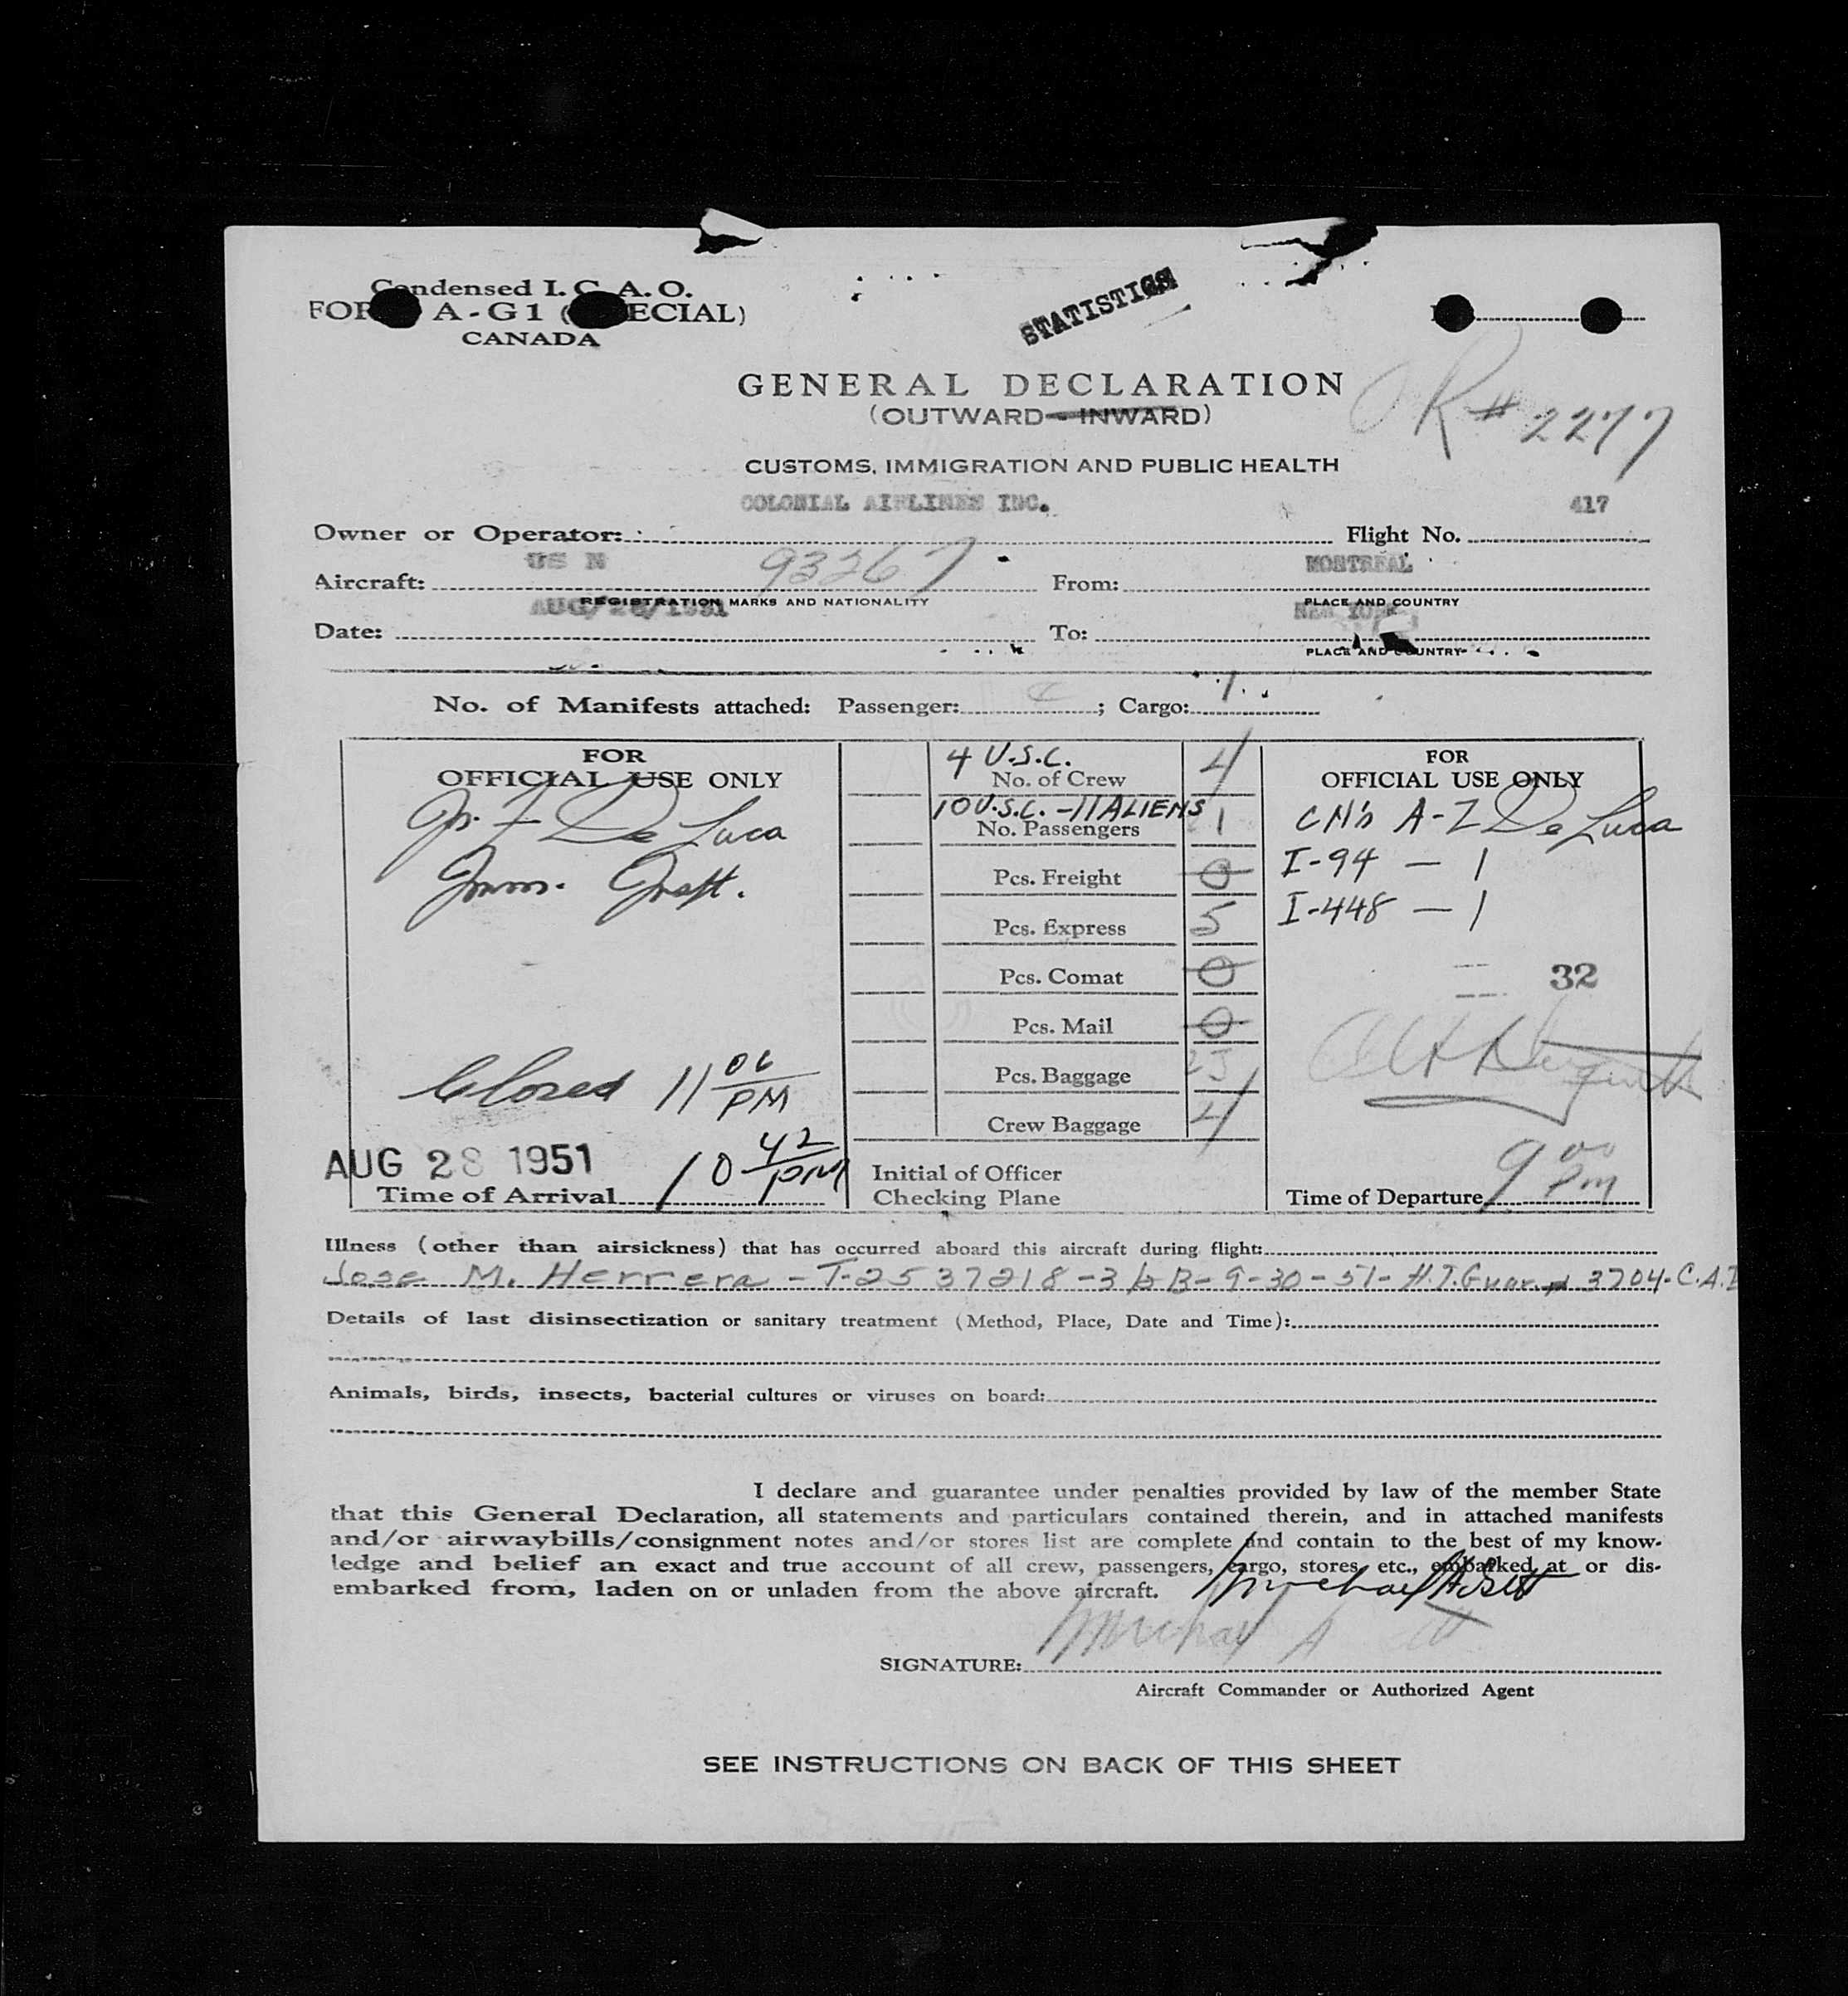 Condensed I. C. A. O.
FOR A - G 1 ( ECIAL)
CANADA
STATISTICS
GENERAL DECLARATION
(OUTWARD - INWARD)
R # 2277
CUSTOMS, IMMIGRATION AND PUBLIC HEALTH
COLONIAL AIRLINES INC. 417
Owner or Operator: Flight No.
US N 93267 MONTREAL
Aircraft: From:
REGISTRATION MARKS AND NATIONALITY PLACE AND COUNTRY
AUG/28/1951 NEW YORK
Date: To:
PLACE AND COUNTRY
No. of Manifests attached: Passenger: ; Cargo: 1
FOR
OFFICIAL USE ONLY
De Luca
Imm. Insp.
Closed 11 06 PM
AUG 28 1951 10 42 PM
Time of Arrival
4 U.S.C.
No. of Crew 4
10 U.S.C. - 11 ALIENS
No. Passengers 1
Pcs. Freight 0
Pcs. Express 5
Pcs. Comat 0
Pcs. Mail 0
Pcs. Baggage
Crew Baggage 4
Initial of Officer
Checking Plane
FOR
OFFICIAL USE ONLY
A-Z De Luca
I-94 — 1
I-448 — 1
32
9 00 Pm
Time of Departure
Illness (other than airsickness) that has occurred aboard this aircraft during flight:
Jose M. Herrera - T-2537218 - 3 B - 9-30-51 - 3704 - C.A.
Details of last disinsectization or sanitary treatment (Method, Place, Date and Time):
Animals, birds, insects, bacterial cultures or viruses on board:
I declare and guarantee under penalties provided by law of the member State
that this General Declaration, all statements and particulars contained therein, and in attached manifests
and/or airwaybills/consignment notes and/or stores list are complete and contain to the best of my know-
ledge and belief an exact and true account of all crew, passengers, cargo, stores, etc., embarked at or dis-
embarked from, laden on or unladen from the above aircraft. Michael A
Michael A
SIGNATURE:
Aircraft Commander or Authorized Agent
SEE INSTRUCTIONS ON BACK OF THIS SHEET